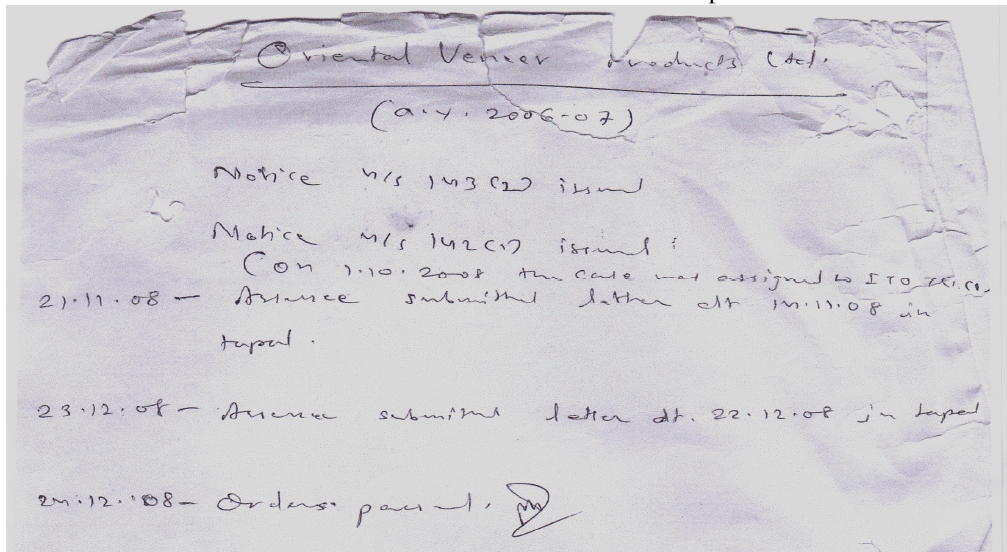 Oriental Veneer Products Ltd.
(a.y. 2006-07)
Notice u/s 143(2) issued
Notice u/s 142(1) issued :
(on 1.10.2008 the case was assigned to ITO
21.11.08 – Assessee submitted letter dt 14.11.08 in
tapal.
23.12.08 – Assessee submitted letter dt. 22.12.08 in tapal
24.12.'08 – Orders passed.